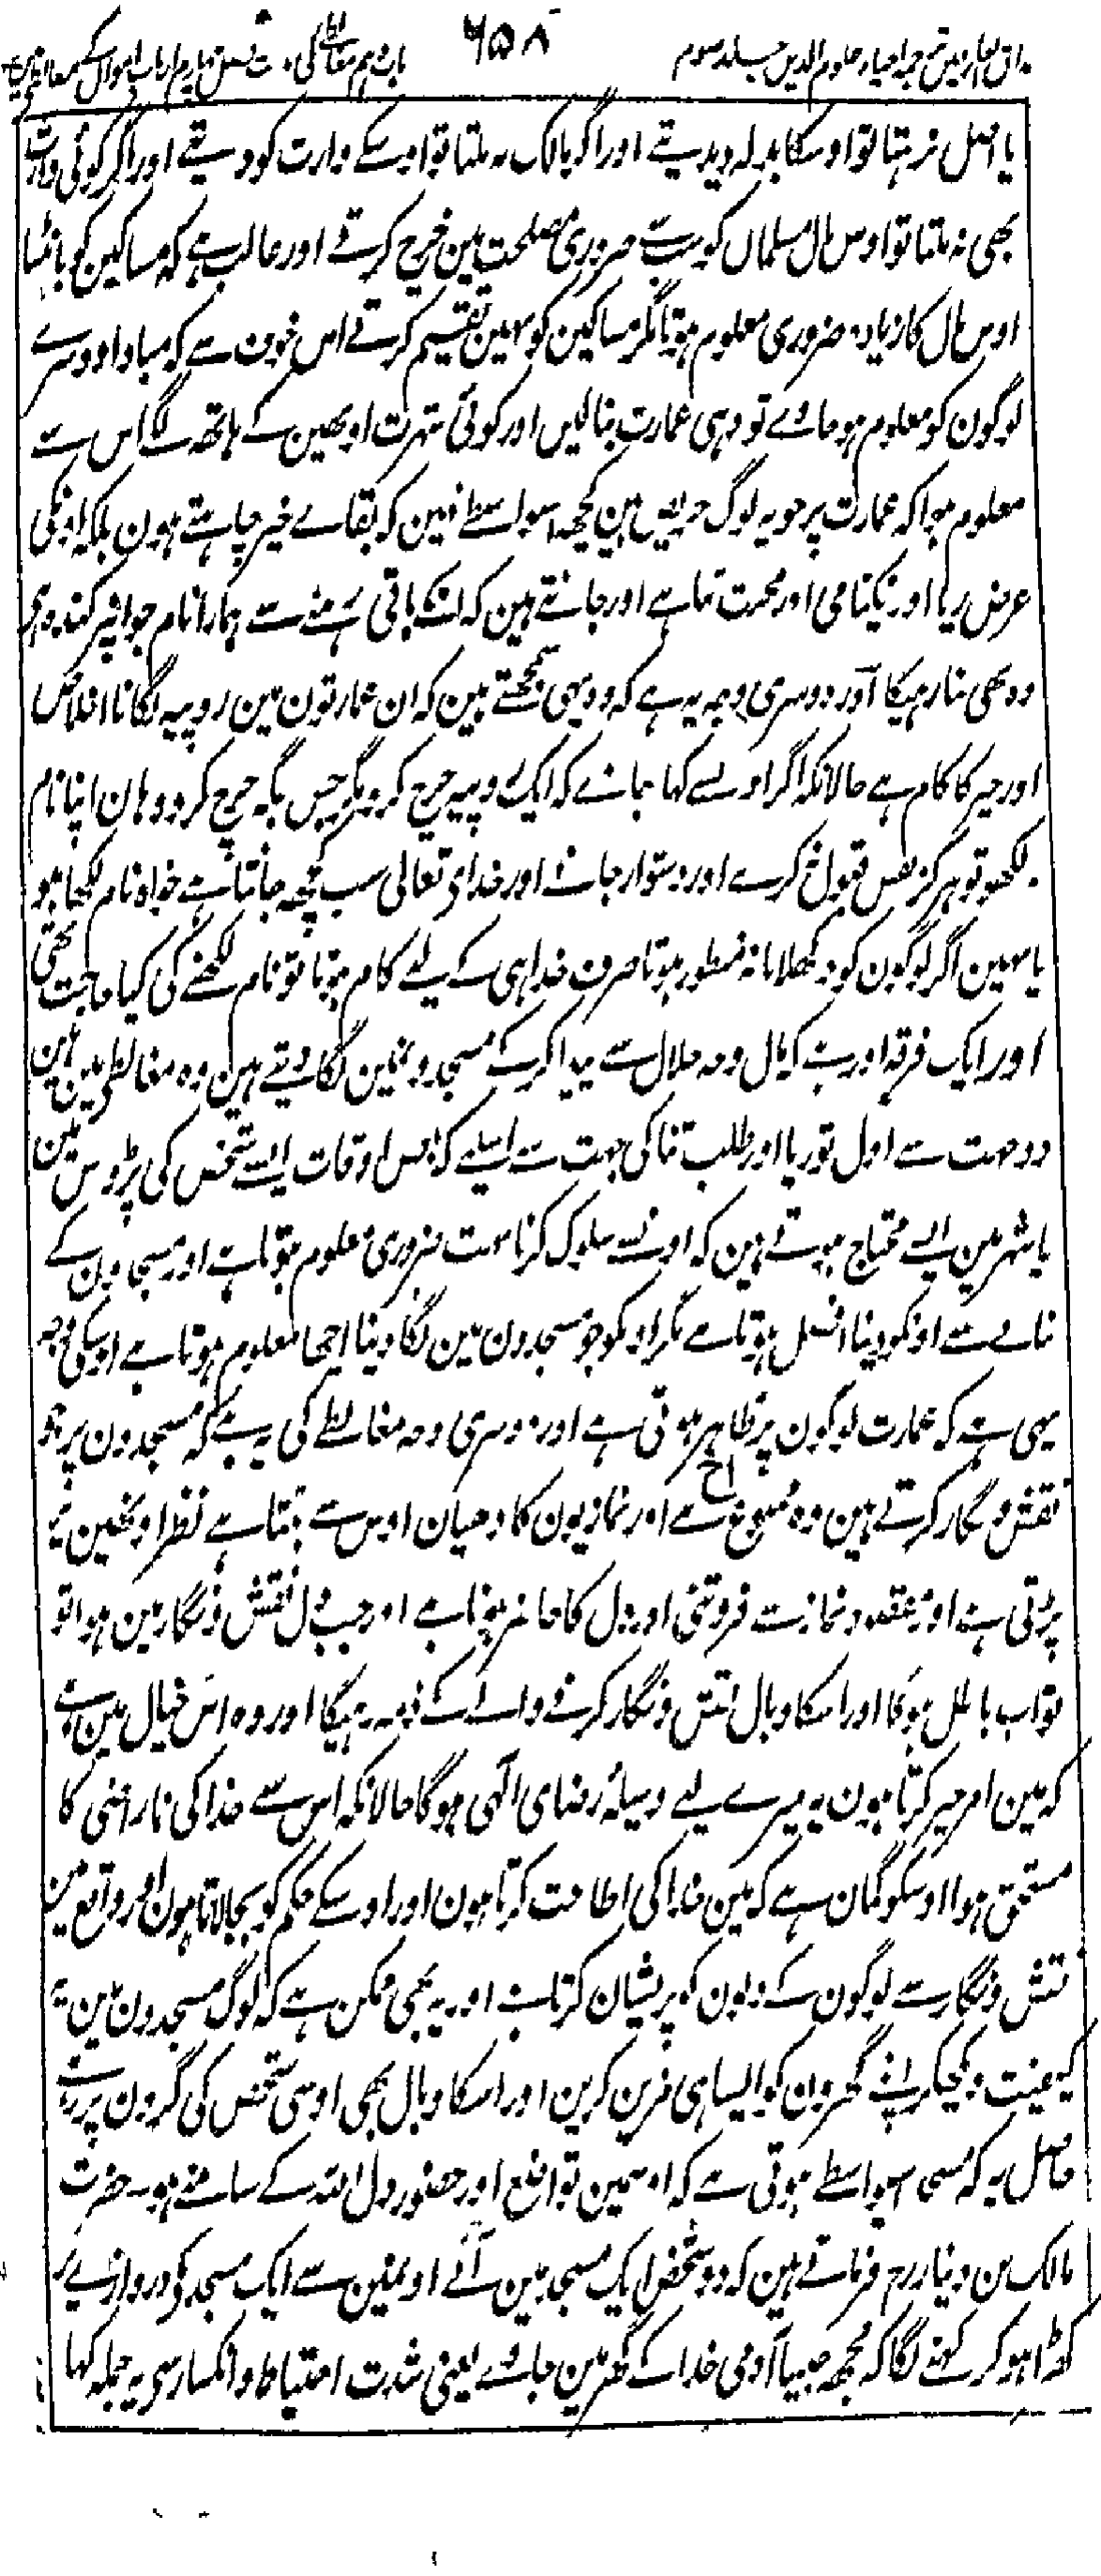 مذاق العارفین ترجمہ احیاء علوم الدین جلد سوم ۶۵۸ باب دہم مغالطے کی
یا اصل نہ رہتا تو اوسکا بدلہ دیدیتے اور اگر مالک نہ ملتا تو اوسکے وارث کو دیتے اور اگر کوئی وارث
بھی نہ ملتا تو اوس مال مسلمان کو بہت ضروری مصلحت مین خرچ کرتے اور غالب ہے کہ مساکین کو بانٹنا
اوس مال کا زیادہ ضروری معلوم ہوتا مگر مساکین کو نہین تقسیم کرتے اس خوف سے کہ مبادا دوسرے
لوگون کو معلوم ہو جاوے تو وہی عمارت بنا لیں اور کوئی شہرت اونھین کے ہاتھ لگے اس سے
معلوم ہوا کہ عمارت پر جو یہ لوگ حریص ہین کچھ اسواسطے نہین کہ بقاے خیر چاہتے ہون بلکہ اونکی
غرض ریا اور نیکنامی اور محبت ثنا ہے اور جانتے ہین کہ انکے باقی رہنے سے ہمارا نام جو اسپر کندہ ہے
وہ بھی بنا رہیگا اور دوسری وجہ یہ ہے کہ وہ یہی سمجھتے ہین کہ ان عمارتون مین روپیہ لگانا اخلاص
اور خیر کا کام ہے حالانکہ اگر اونسے کہا جائے کہ ایک روپیہ خرچ کرو مگر جس جگہ خرچ کرو وہان اپنا نام
نہ لکھو تو ہرگز نفس قبول نہ کرے اور دشوار جانے اور خدای تعالی سب کچھ جانتا ہے خواہ نام لکھا ہو
یا نہین اگر لوگون کو دکھلانا نہ منظور ہوتا صرف خدا ہی کے لیے کام ہوتا تو نام لکھنے کی کیا حاجت تھی
اور ایک فرقہ اور ہے کہ مال وجہ حلال سے پیدا کر کے مسجد وغیرہ مین لگا دیتے ہین وہ مغالطے مین ہین
دو جہت سے اول تو ریا اور طلب ثنا کی جہت سے اسلیے کہ بعض اوقات ایسے شخص کی پڑوس مین
یا شہر مین ایسے محتاج ہوتے ہین کہ اونسے سلوک کرنا بہت ضروری معلوم ہوتا ہے اور مسجدون کے
بنانے سے اونکو دینا افضل ہوتا ہے مگر اونکو جو مسجدون مین لگا دینا اچھا معلوم ہوتا ہے اوسکی وجہ
یہی ہے کہ عمارت لوگون پر ظاہر ہوتی ہے اور دوسری وجہ مغالطے کی یہ ہے کہ مسجدون پر جو
نقش و نگار کرتے ہین وہ ممنوع ہے اور نمازیون کا دھیان اوس سے بٹتا ہے نظر اونھین پر
پڑتی ہے اور مقصود نماز سے فروتنی اور دل کا حاضر ہونا ہے اور جب دل نقش و نگار مین ہوا تو
ثواب باطل ہوگا اور اسکا وبال نقش و نگار کرنے والے کے ذمہ رہیگا اور وہ اس خیال مین ہے
کہ مین امر خیر کرتا ہون یہ میرے لیے وسیلۂ رضای الٰہی ہوگا حالانکہ اس سے خدا کی ناراضی کا
مستحق ہوا اوسکو گمان ہے کہ مین خدا کی اطاعت کرتا ہون اور اوسکے حکم کو بجا لاتا ہون اور واقع مین
نقش و نگار سے لوگون کے دلون کو پریشان کرتا ہے اور یہ بھی ممکن ہے کہ لوگ مسجدون مین یہ
کیفیت دیکھکر اپنے گھرون کو ایسا ہی مزین کرین اور اسکا وبال بھی اوسی شخص کی گردن پر رہے
حاصل یہ کہ مسجد اسواسطے ہوتی ہے کہ اوسمین تواضع اور حضور دل اللہ کے سامنے ہو۔ حضرت
مالک بن دینار رح فرماتے ہین کہ دو شخص ایک مسجد مین آئے اونمین سے ایک مسجد کے دروازے پر
کھڑا ہو کر کہنے لگا کہ مجھ جیسا آدمی خدا کے گھر مین جاوے یعنی شدت احتیاط و انکسار سے یہ جملہ کہا